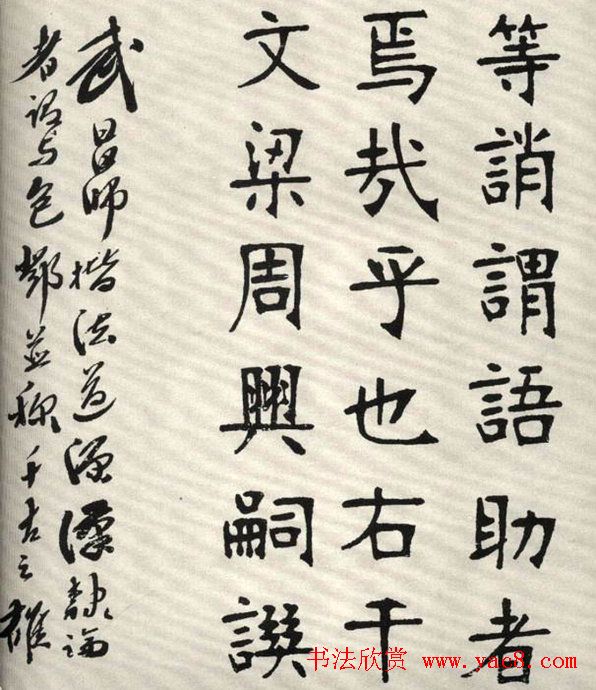 等誚謂語助者
焉哉乎也右千
文梁周興嗣譔
武昌師楷法道源漢隸論
者謂与包鄧並称千古之雄
书法欣赏 www.yac8.com